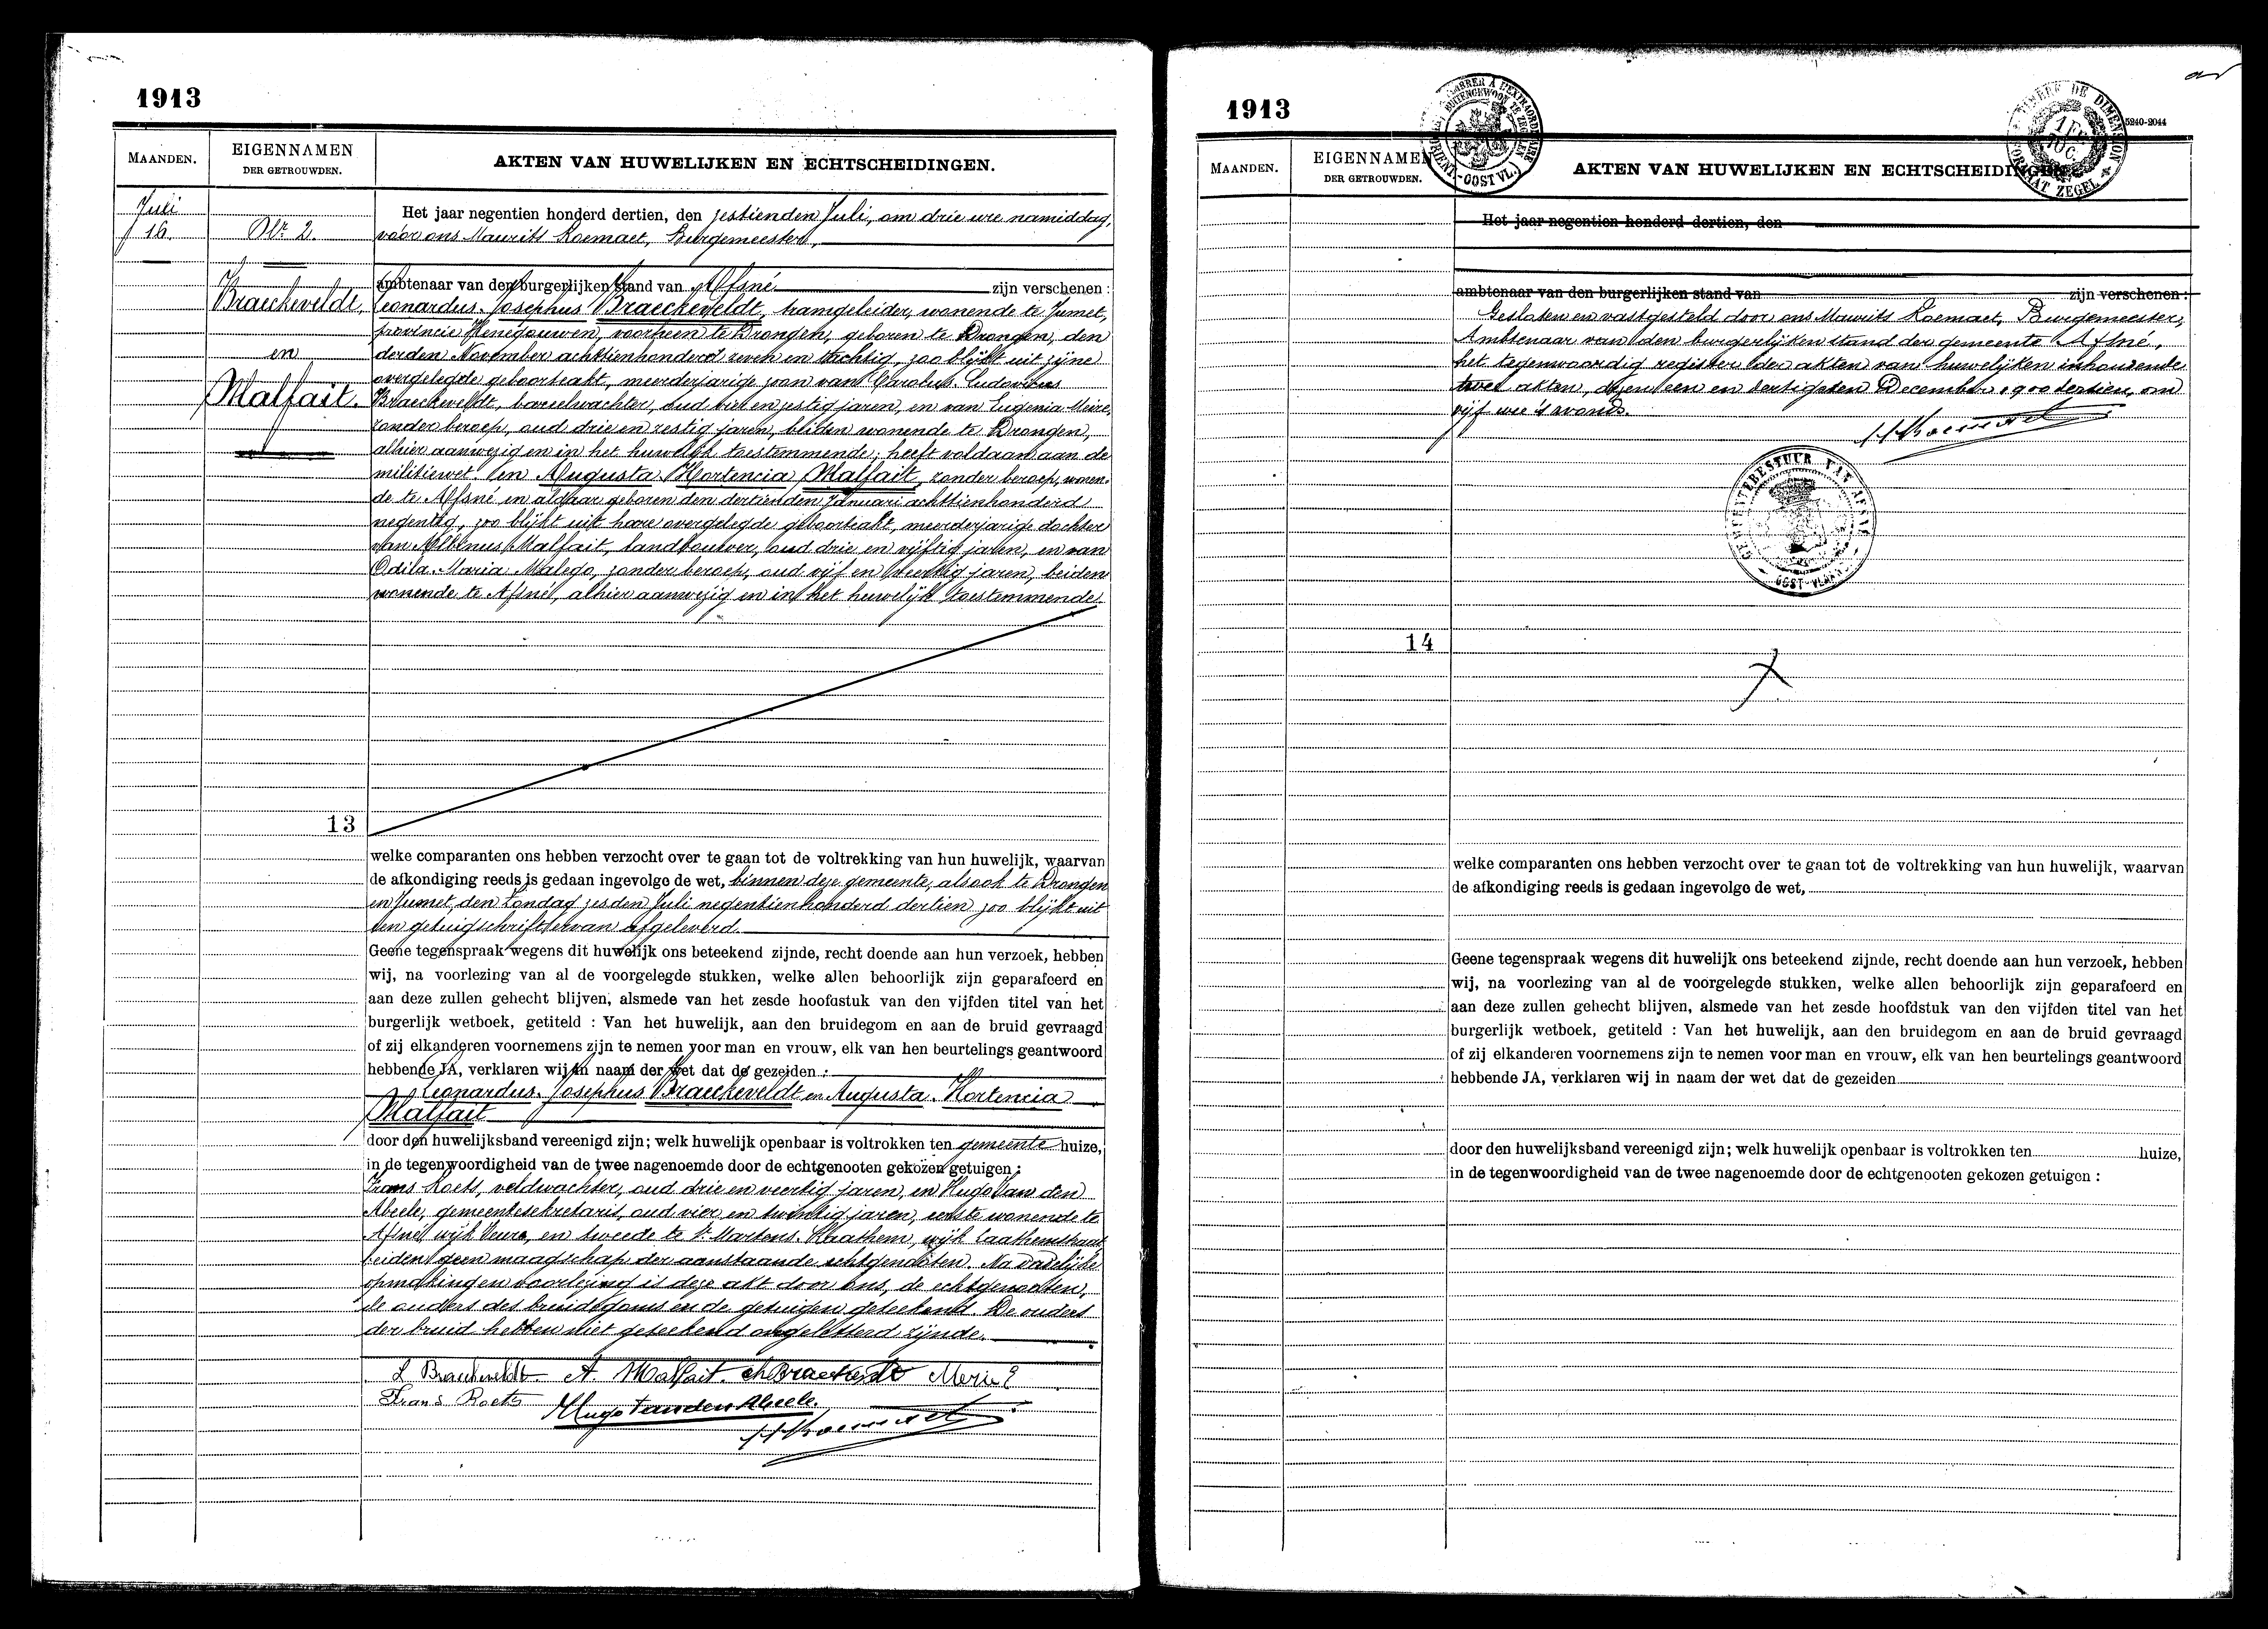 1913
MAANDEN.
EIGENNAMEN
DER GETROUWDEN.
AKTEN VAN HUWELIJKEN EN ECHTSCHEIDINGEN.
Juli
16.
Nr. 2.
Braeckeveldt,
en
Malfait.
Het jaar negentien honderd dertien, den zestienden Juli, om drie ure namiddag,
voor ons Maurits Roemaet, Burgemeester,
ambtenaar van den burgerlijken stand van Afsné zijn verschenen:
Leonardus-Josephus Braeckeveldt, tramgeleider, wonende te Jumet,
provincie Henegouwen, voorheen te Drongen, geboren te Drongen, den
derden November achttienhonderd zeven en tachtig, zoo blijkt uit zijne
overgelegde geboorteakt, meerderjarige zoon van Carolus-Ludovicus
Braeckeveldt, bareelwachter, oud vier en zestig jaren, en van Eugenia Meire,
zonder beroep, oud drie en zestig jaren, beiden wonende te Drongen,
alhier aanwezig en in het huwelijk toestemmende; heeft voldaan aan de
militiewet. En Augusta-Hortencia Malfait, zonder beroep, wonen-
de te Afsné en aldaar geboren den dertienden Januari achttienhonderd
negentig, zoo blijkt uit hare overgelegde geboorteakt, meerderjarige dochter
van Albinus Malfait, landbouwer, oud drie en vijftig jaren, en van
Odila-Maria Malego, zonder beroep, oud vijf en veertig jaren, beiden
wonende te Afsné, alhier aanwezig en in het huwelijk toestemmende.
13
welke comparanten ons hebben verzocht over te gaan tot de voltrekking van hun huwelijk, waarvan
de afkondiging reeds is gedaan ingevolge de wet, binnen deze gemeente, alsook te Drongen
en Jumet, den Zondag zesden Juli negentienhonderd dertien zoo blijkt uit
een getuigschrift ervan afgeleverd.
Geene tegenspraak wegens dit huwelijk ons beteekend zijnde, recht doende aan hun verzoek, hebben
wij, na voorlezing van al de voorgelegde stukken, welke allen behoorlijk zijn geparafeerd en
aan deze zullen gehecht blijven, alsmede van het zesde hoofdstuk van den vijfden titel van het
burgerlijk wetboek, getiteld : Van het huwelijk, aan den bruidegom en aan de bruid gevraagd
of zij elkanderen voornemens zijn te nemen voor man en vrouw, elk van hen beurtelings geantwoord
hebbende JA, verklaren wij in naam der wet dat de gezeiden :
Leonardus-Josephus Braeckeveldt en Augusta-Hortencia
Malfait
door den huwelijksband vereenigd zijn; welk huwelijk openbaar is voltrokken ten gemeente huize,
in de tegenwoordigheid van de twee nagenoemde door de echtgenooten gekozen getuigen :
Frans Roets, veldwachter, oud drie en veertig jaren, en Hugo Van den
Abeele, gemeentesekretaris, oud vier en twintig jaren, eerste wonende te
Afsné wijk Veure, en tweede te St. Martens-Laathem, wijk Laathemstraat
beiden geen maagschap der aanstaande echtgenooten. Na dadelijke
opmakingen voorlezing is deze akt door ons, de echtgenooten,
de ouders des bruidegoms en de getuigen geteekend. De ouders
der bruid hebben niet geteekend ongeletterd zijnde.
L Braeckeveldt A. Malfait. ch Braeckeveldt Meire E
Frans Roets Hugo Vanden Abeele.
1913
5240-2044
MAANDEN.
EIGENNAMEN
DER GETROUWDEN.
AKTEN VAN HUWELIJKEN EN ECHTSCHEIDINGEN.
Het jaar negentien honderd dertien, den
ambtenaar van den burgerlijken stand van zijn verschenen:
Gesloten en vastgesteld door ons Maurits Roemaet, Burgemeester,
Ambtenaar van den burgerlijken stand der gemeente Afsné,
het tegenwoordig register der akten van huwelijken inhoudende
twee akten, dezen een en dertigsten December 1900 dertien, om
vijf ure 's avonds.
GEMEENTEBESTUUR VAN AFSNÉ
OOST-VLAAN
14
welke comparanten ons hebben verzocht over te gaan tot de voltrekking van hun huwelijk, waarvan
de afkondiging reeds is gedaan ingevolge de wet,
Geene tegenspraak wegens dit huwelijk ons beteekend zijnde, recht doende aan hun verzoek, hebben
wij, na voorlezing van al de voorgelegde stukken, welke allen behoorlijk zijn geparafeerd en
aan deze zullen gehecht blijven, alsmede van het zesde hoofdstuk van den vijfden titel van het
burgerlijk wetboek, getiteld : Van het huwelijk, aan den bruidegom en aan de bruid gevraagd
of zij elkanderen voornemens zijn te nemen voor man en vrouw, elk van hen beurtelings geantwoord
hebbende JA, verklaren wij in naam der wet dat de gezeiden
door den huwelijksband vereenigd zijn; welk huwelijk openbaar is voltrokken ten huize,
in de tegenwoordigheid van de twee nagenoemde door de echtgenooten gekozen getuigen :